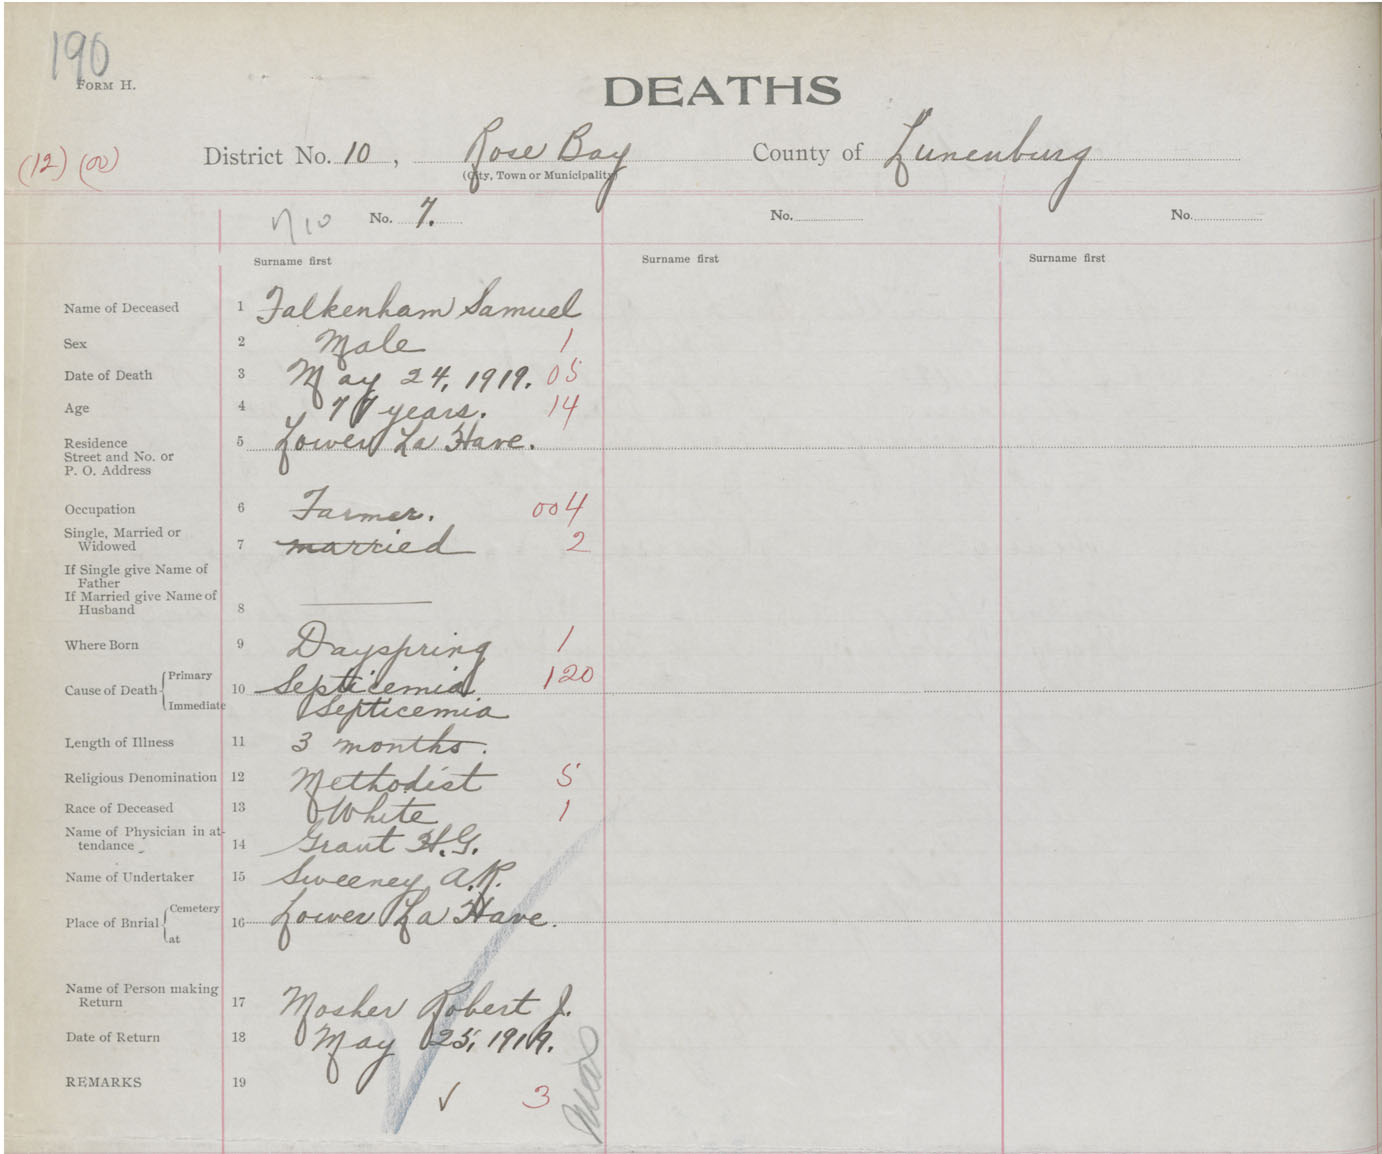 190
FORM H.
DEATHS
(12) (00)
District No. 10, Rose Bay County of Lunenburg
(City, Town or Municipality)
No. 7. No. No.
Surname first Surname first Surname first
Name of Deceased 1 Falkenham Samuel
Sex 2 Male 1
Date of Death 3 May 24, 1919. 05
Age 4 77 years. 14
Residence 5 Lower La Have.
Street and No. or
P. O. Address
Occupation 6 Farmer. 004
Single, Married or
Widowed 7 married 2
If Single give Name of
Father
If Married give Name of
Husband 8
Where Born 9 Dayspring 1
Cause of Death Primary 10 Septicemia 120
Immediate Septicemia
Length of Illness 11 3 months.
Religious Denomination 12 Methodist 5
Race of Deceased 13 White 1
Name of Physician in at-
tendance 14 Grant H.G.
Name of Undertaker 15 Sweeney A.R.
Place of Burial Cemetery 16 Lower La Have.
at
Name of Person making
Return 17 Mosher Robert J.
Date of Return 18 May 25, 1919.
REMARKS 19
3